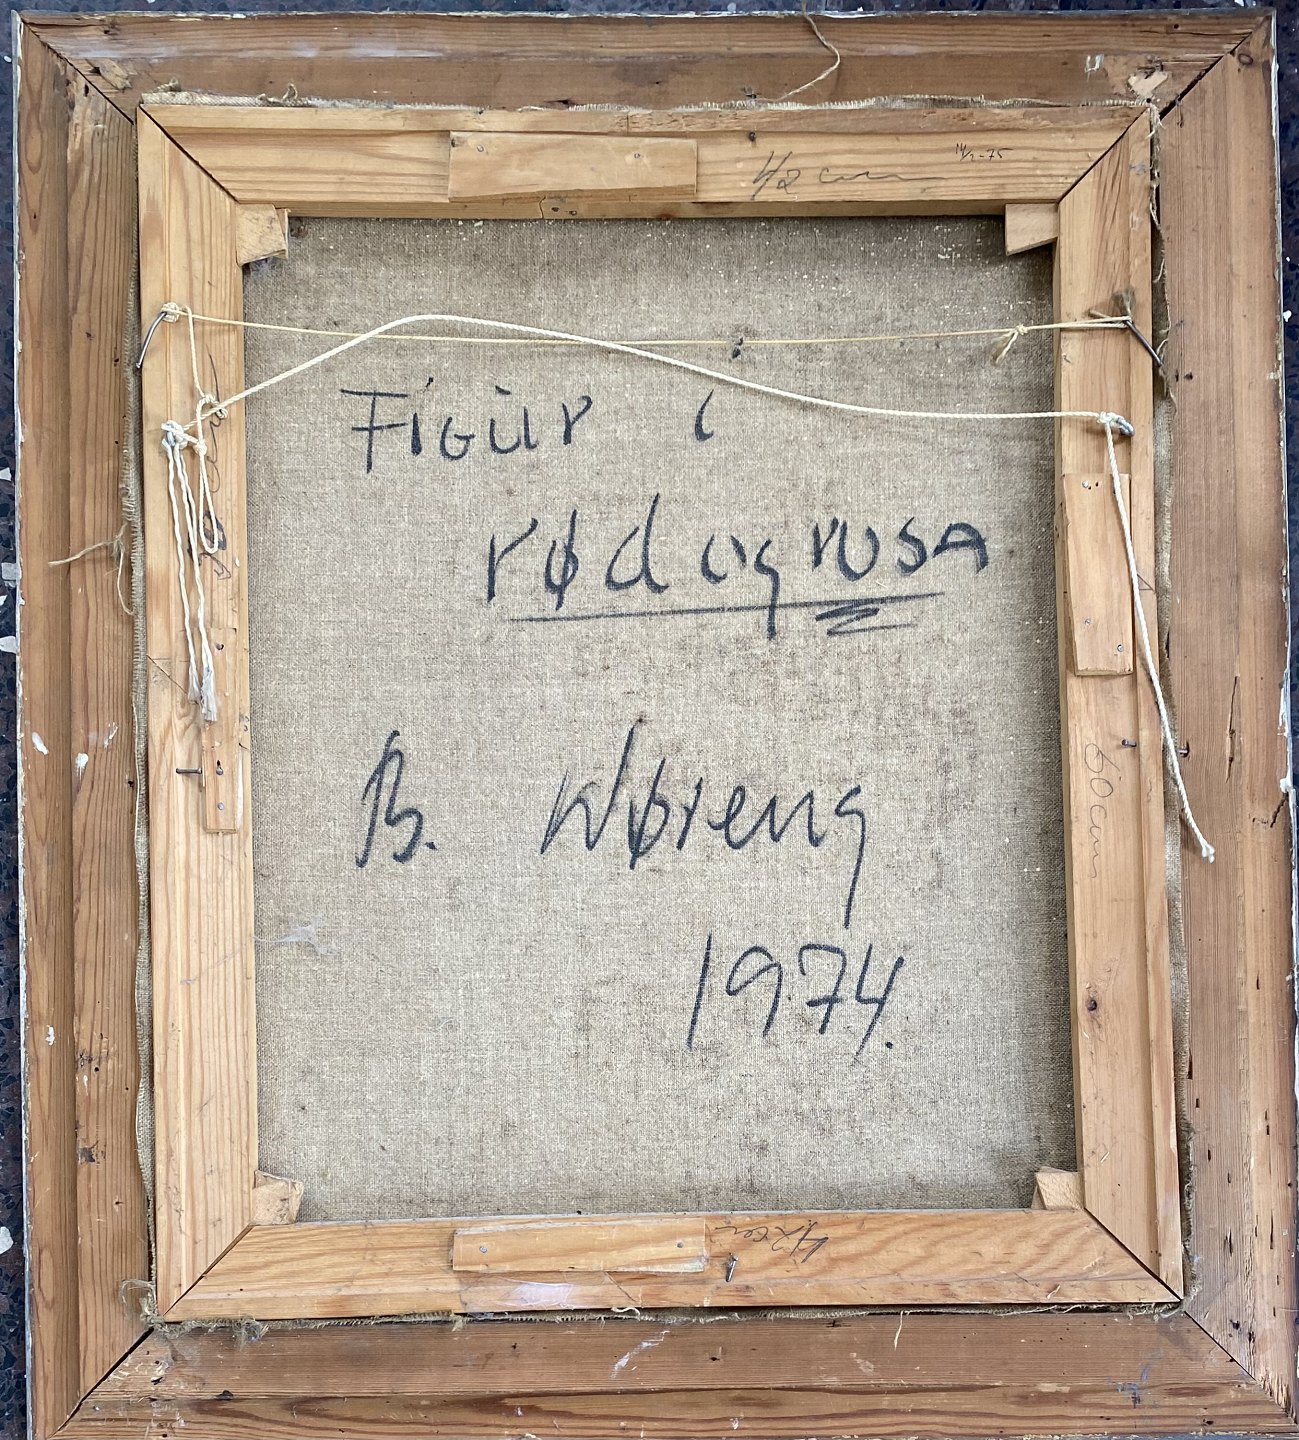 42 cm
14/2-75
Figur i
rød og rosa
B. Nøreng
1974.
60 cm
42 cm